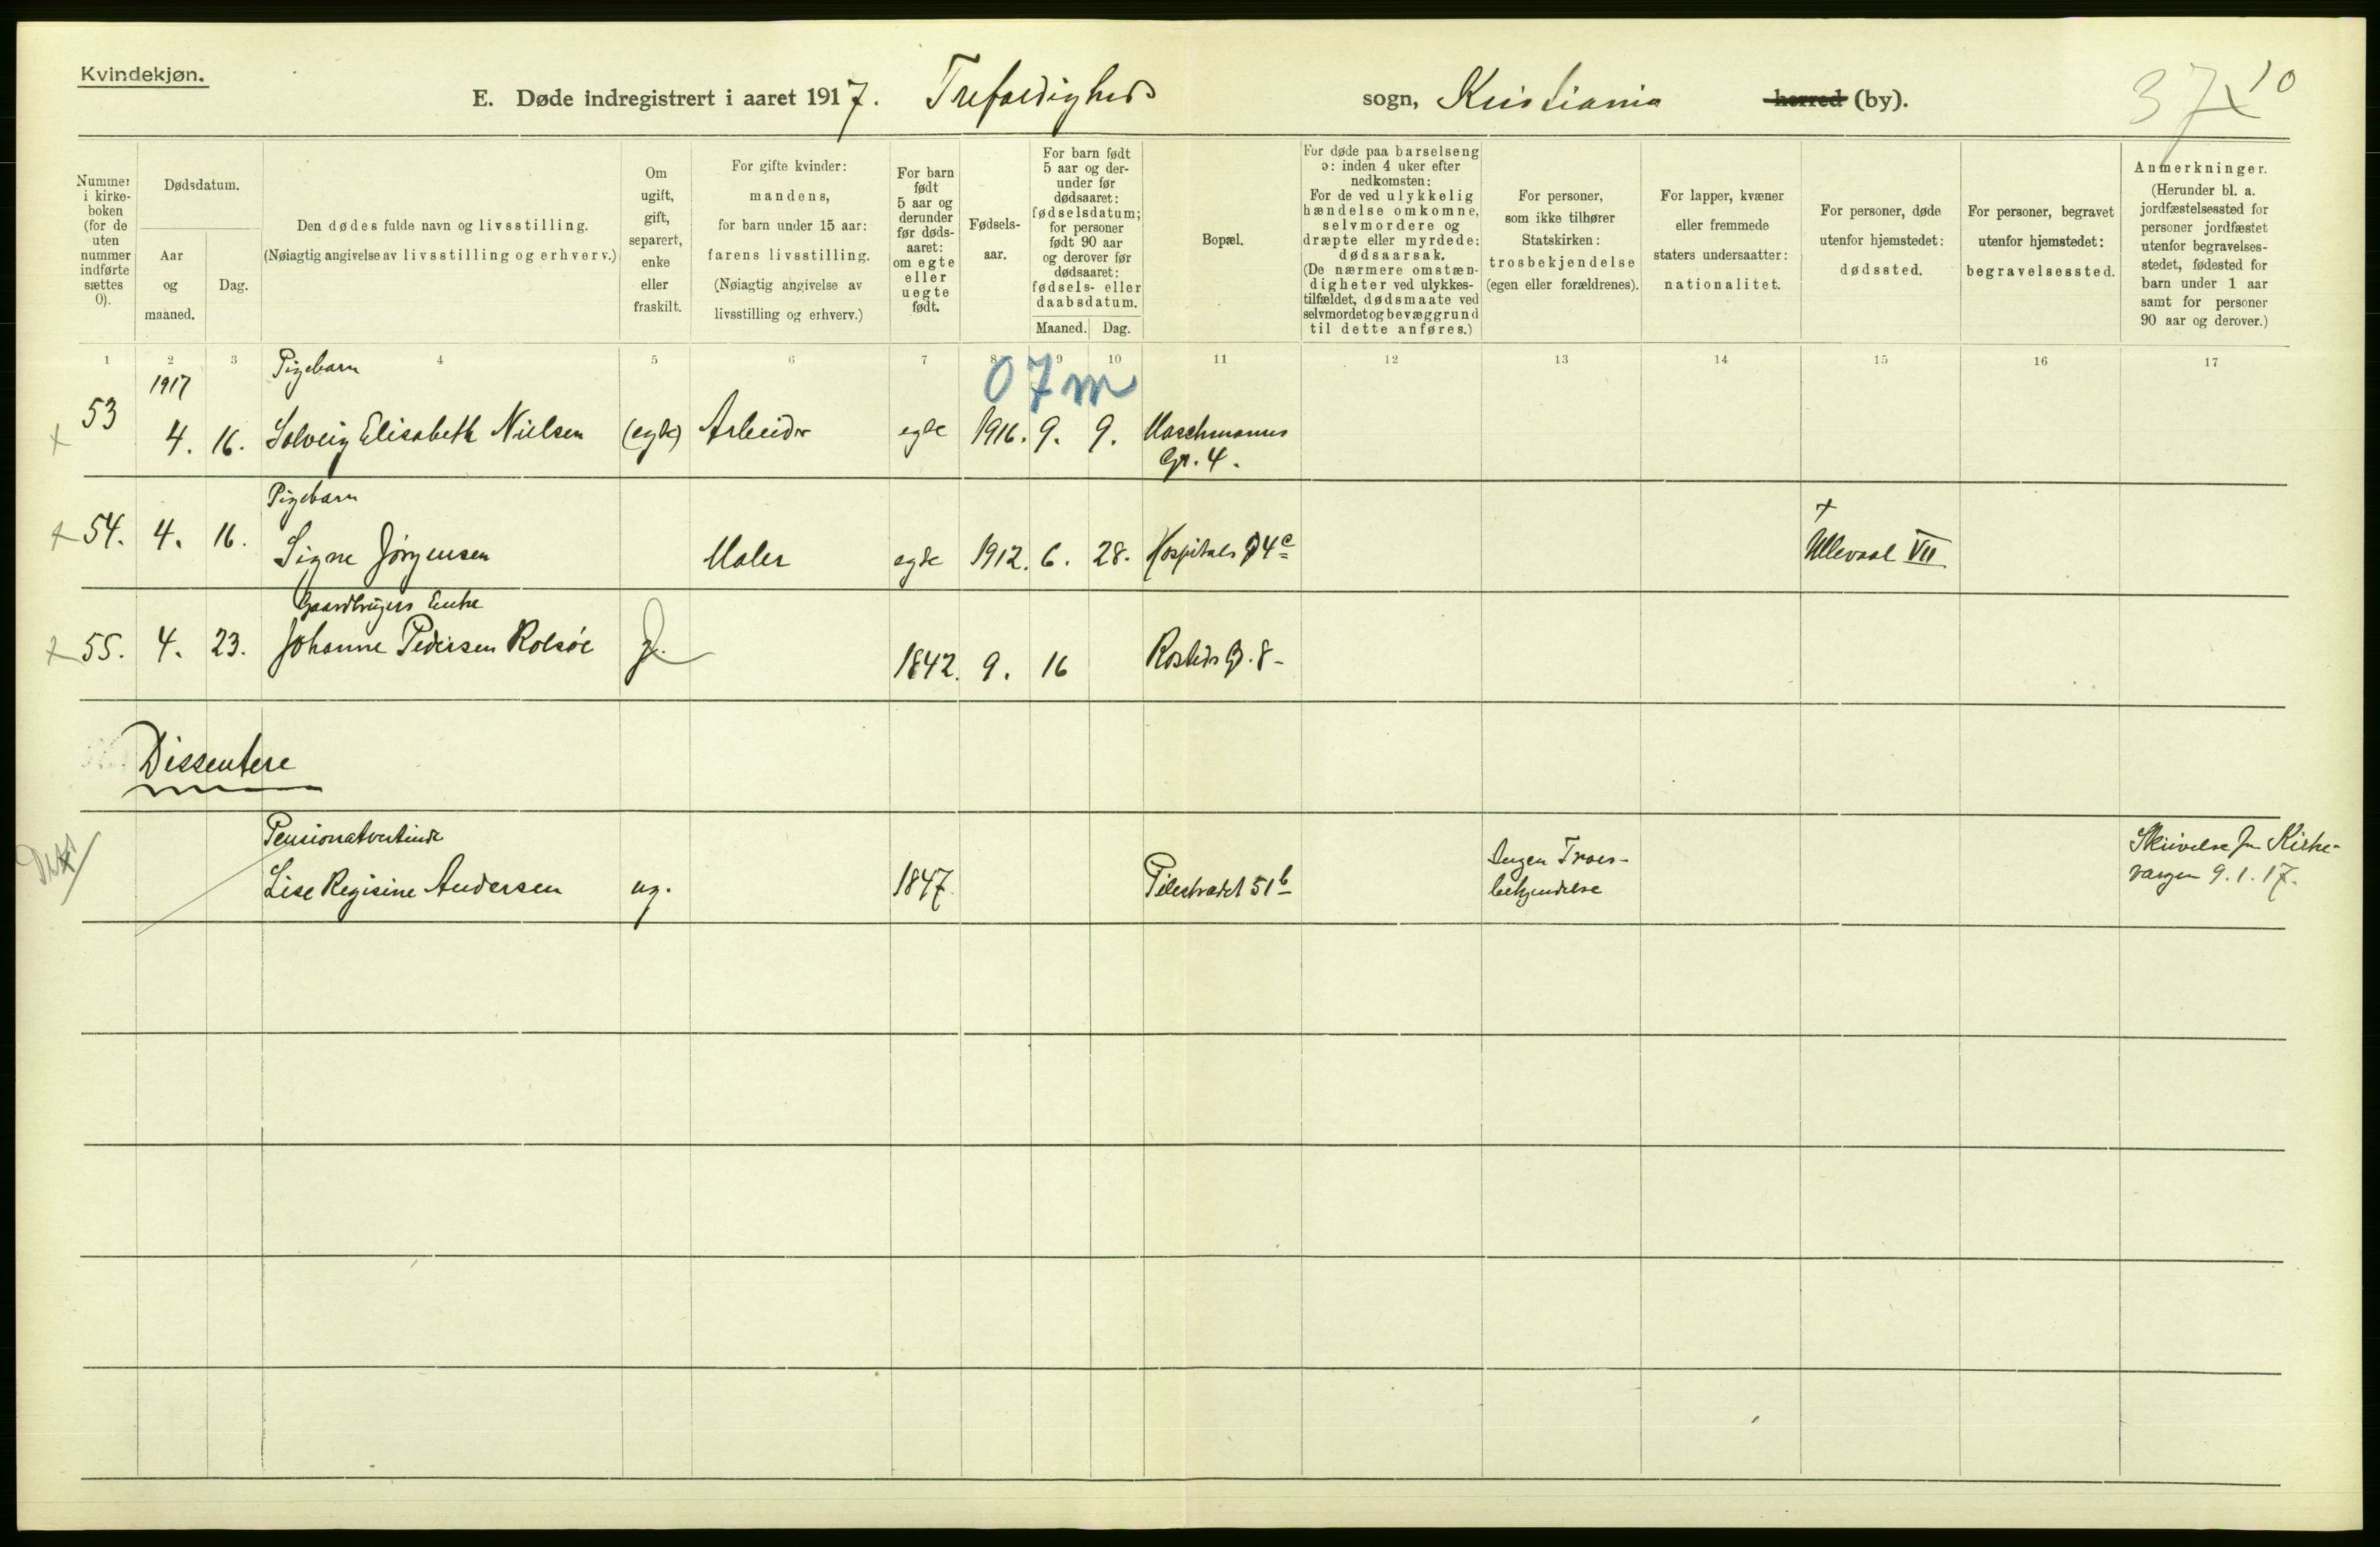 Kvindekjøn.
E. Døde indregistrert i aaret 1917. Trefoldigheds sogn, Kristiania herred (by).
37 x 10
Nummer i kirke-boken (for de uten nummer indførte sættes 0).
Dødsdatum.
Aar og maaned.
Dag.
Den dødes fulde navn og livsstilling.
(Nøiagtig angivelse av livsstilling og erhverv.)
Om ugift, gift, separert, enke eller fraskilt.
For gifte kvinder: mandens, for barn under 15 aar: farens livsstilling.
(Nøiagtig angivelse av livsstilling og erhverv.)
For barn født 5 aar og derunder før døds-aaret: om egte eller uegte født.
Fødsels-aar.
For barn født 5 aar og der-under før dødsaaret: fødselsdatum; for personer født 90 aar og derover før dødsaaret: fødsels- eller daabsdatum.
Maaned. Dag.
Bopæl.
For døde paa barselseng ɔ: inden 4 uker efter nedkomsten:
For de ved ulykkelig hændelse omkomne, selvmordere og dræpte eller myrdede: dødsaarsak.
(De nærmere omstæn-digheter ved ulykkes-tilfældet, dødsmaate ved selvmordet og bevæggrund til dette anføres.)
For personer, som ikke tilhører Statskirken: trosbekjendelse (egen eller forældrenes).
For lapper, kvæner eller fremmede staters undersaatter: nationalitet.
For personer, døde utenfor hjemstedet: dødssted.
For personer, begravet utenfor hjemstedet: begravelsessted.
Anmerkninger.
(Herunder bl. a. jordfæstelsessted for personer jordfæstet utenfor begravelses-stedet, fødested for barn under 1 aar samt for personer 90 aar og derover.)
1 2 3 4 5 6 7 8 9 10 11 12 13 14 15 16 17
1917 Pigebarn 07m
53 4. 16. Solveig Elisabeth Nielsen (egte) Arbeider egte 1916. 9. 9. Maschmanns Gr. 4.
Pigebarn
54. 4. 16. Signe Jørgensen Maler egte 1912. 6. 28. Hospitals G 4c Ullevaal VII
Gaardbrugers Enke
55. 4. 23. Johanne Pedersen Rolsøe g. 1842. 9. 16 Rosteds G. 8-
Dissentere
Pensionatvertinde
Lise Regisine Andersen ug. 1847. Pilestrædet 51b Ingen Troes-bekjendelse
Skrivelse fra Kirke-vergen 9.1.17.